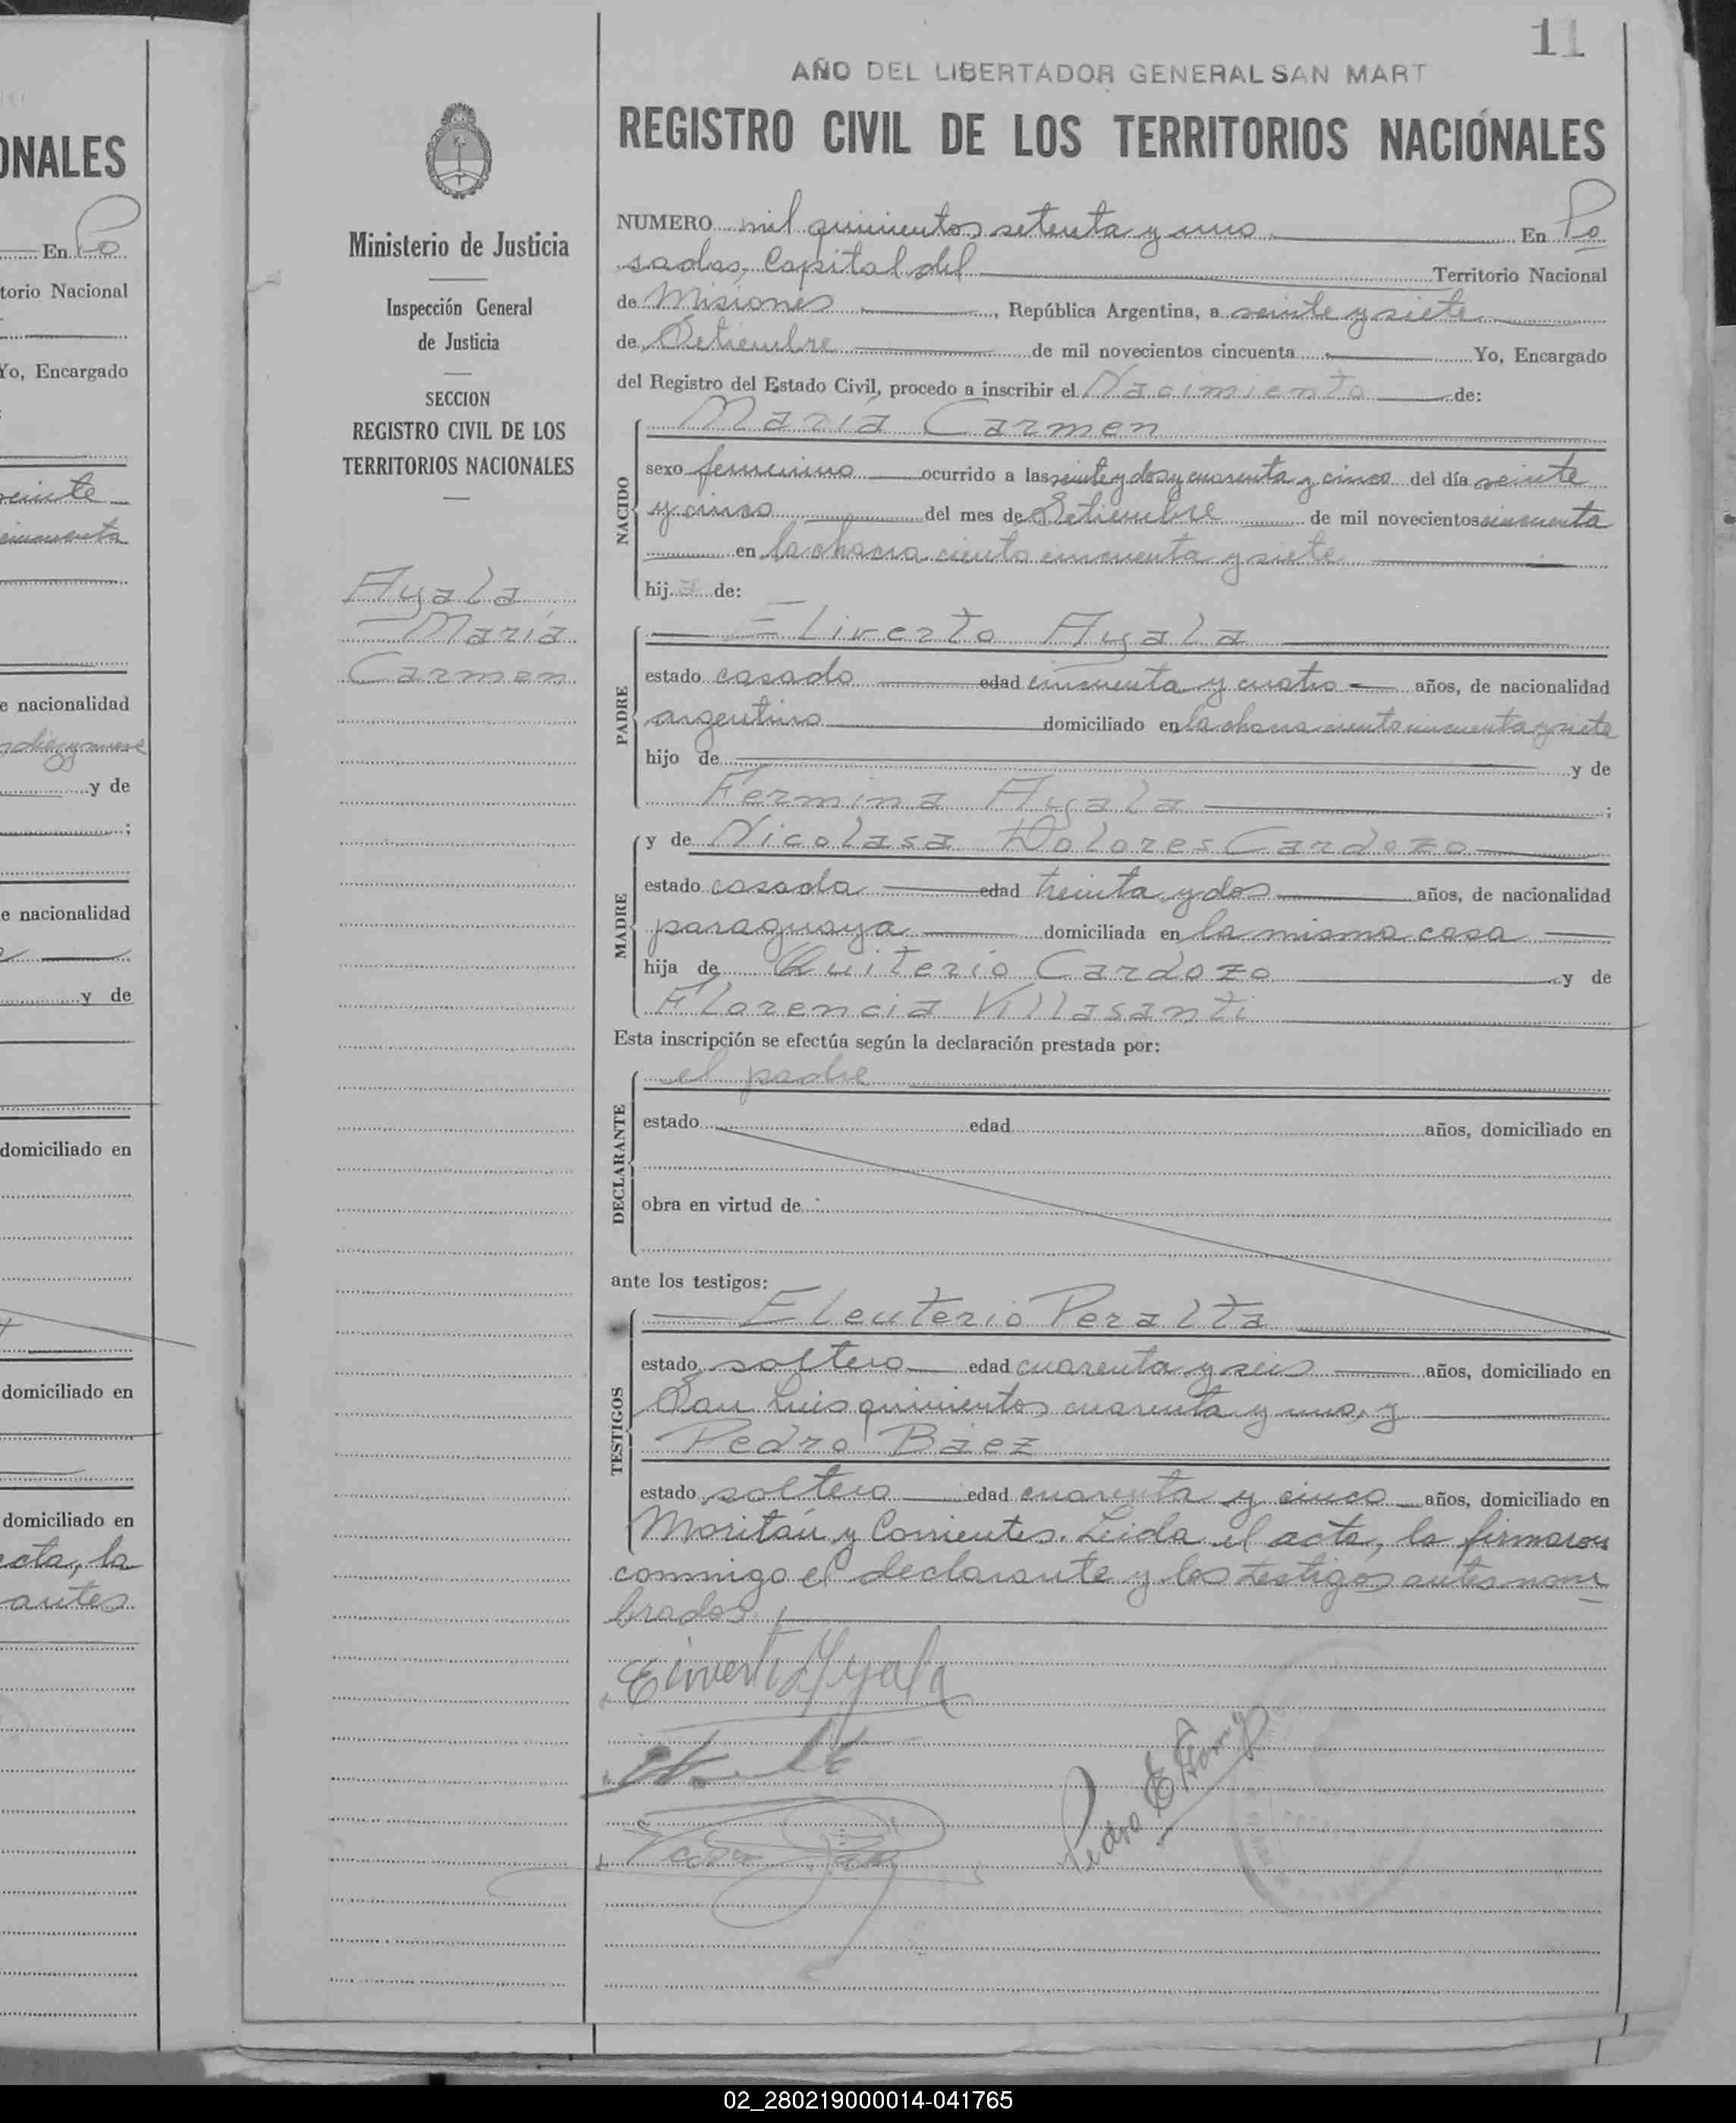 ONALES
En Po
torio Nacional
Yo, Encargado
veinte
cincuenta
e nacionalidad
diez y nueve
y de
;
e nacionalidad
y de
domiciliado en
domiciliado en
domiciliado en
acta, la
antes
Ministerio de Justicia
Inspección General
de Justicia
SECCION
REGISTRO CIVIL DE LOS
TERRITORIOS NACIONALES
Ayala
María
Carmen
11
AÑO DEL LIBERTADOR GENERAL SAN MART
REGISTRO CIVIL DE LOS TERRITORIOS NACIONALES
NUMERO mil quinientos setenta y uno En Po
sadas, Capital del Territorio Nacional
de Misiones, República Argentina, a veinte y siete
de Setiembre de mil novecientos cincuenta Yo, Encargado
del Registro del Estado Civil, procedo a inscribir el Nacimiento de:
María Carmen
NACIDO
sexo femenino ocurrido a las veinte y dos y cuarenta y cinco del día veinte
y cinco del mes de Setiembre de mil novecientos cincuenta
en la chacra ciento cincuenta y siete
hija de:
Eliverto Ayala
PADRE
estado casado edad cincuenta y cuatro años, de nacionalidad
argentino domiciliado en la chacra ciento cincuenta y siete
hijo de y de
Fermina Ayala ;
y de Nicolasa Dolores Cardozo
MADRE
estado casada edad treinta y dos años, de nacionalidad
paraguaya domiciliada en la misma casa
hija de Quiterio Cardozo y de
Florencia Villasanti
Esta inscripción se efectúa según la declaración prestada por:
el padre
DECLARANTE
estado edad años, domiciliado en
obra en virtud de
ante los testigos:
Eleuterio Peralta
TESTIGOS
estado soltero edad cuarenta y seis años, domiciliado en
San Luis quinientos cuarenta y uno, y
Pedro Báez
estado soltero edad cuarenta y cinco años, domiciliado en
Moritán y Corrientes. Leida el acta, la firmaron
conmigo el declarante y los testigos antes nom
brados.
Eliverto Ayala
Pedro E.
Pedro Báez
02_280219000014-041765